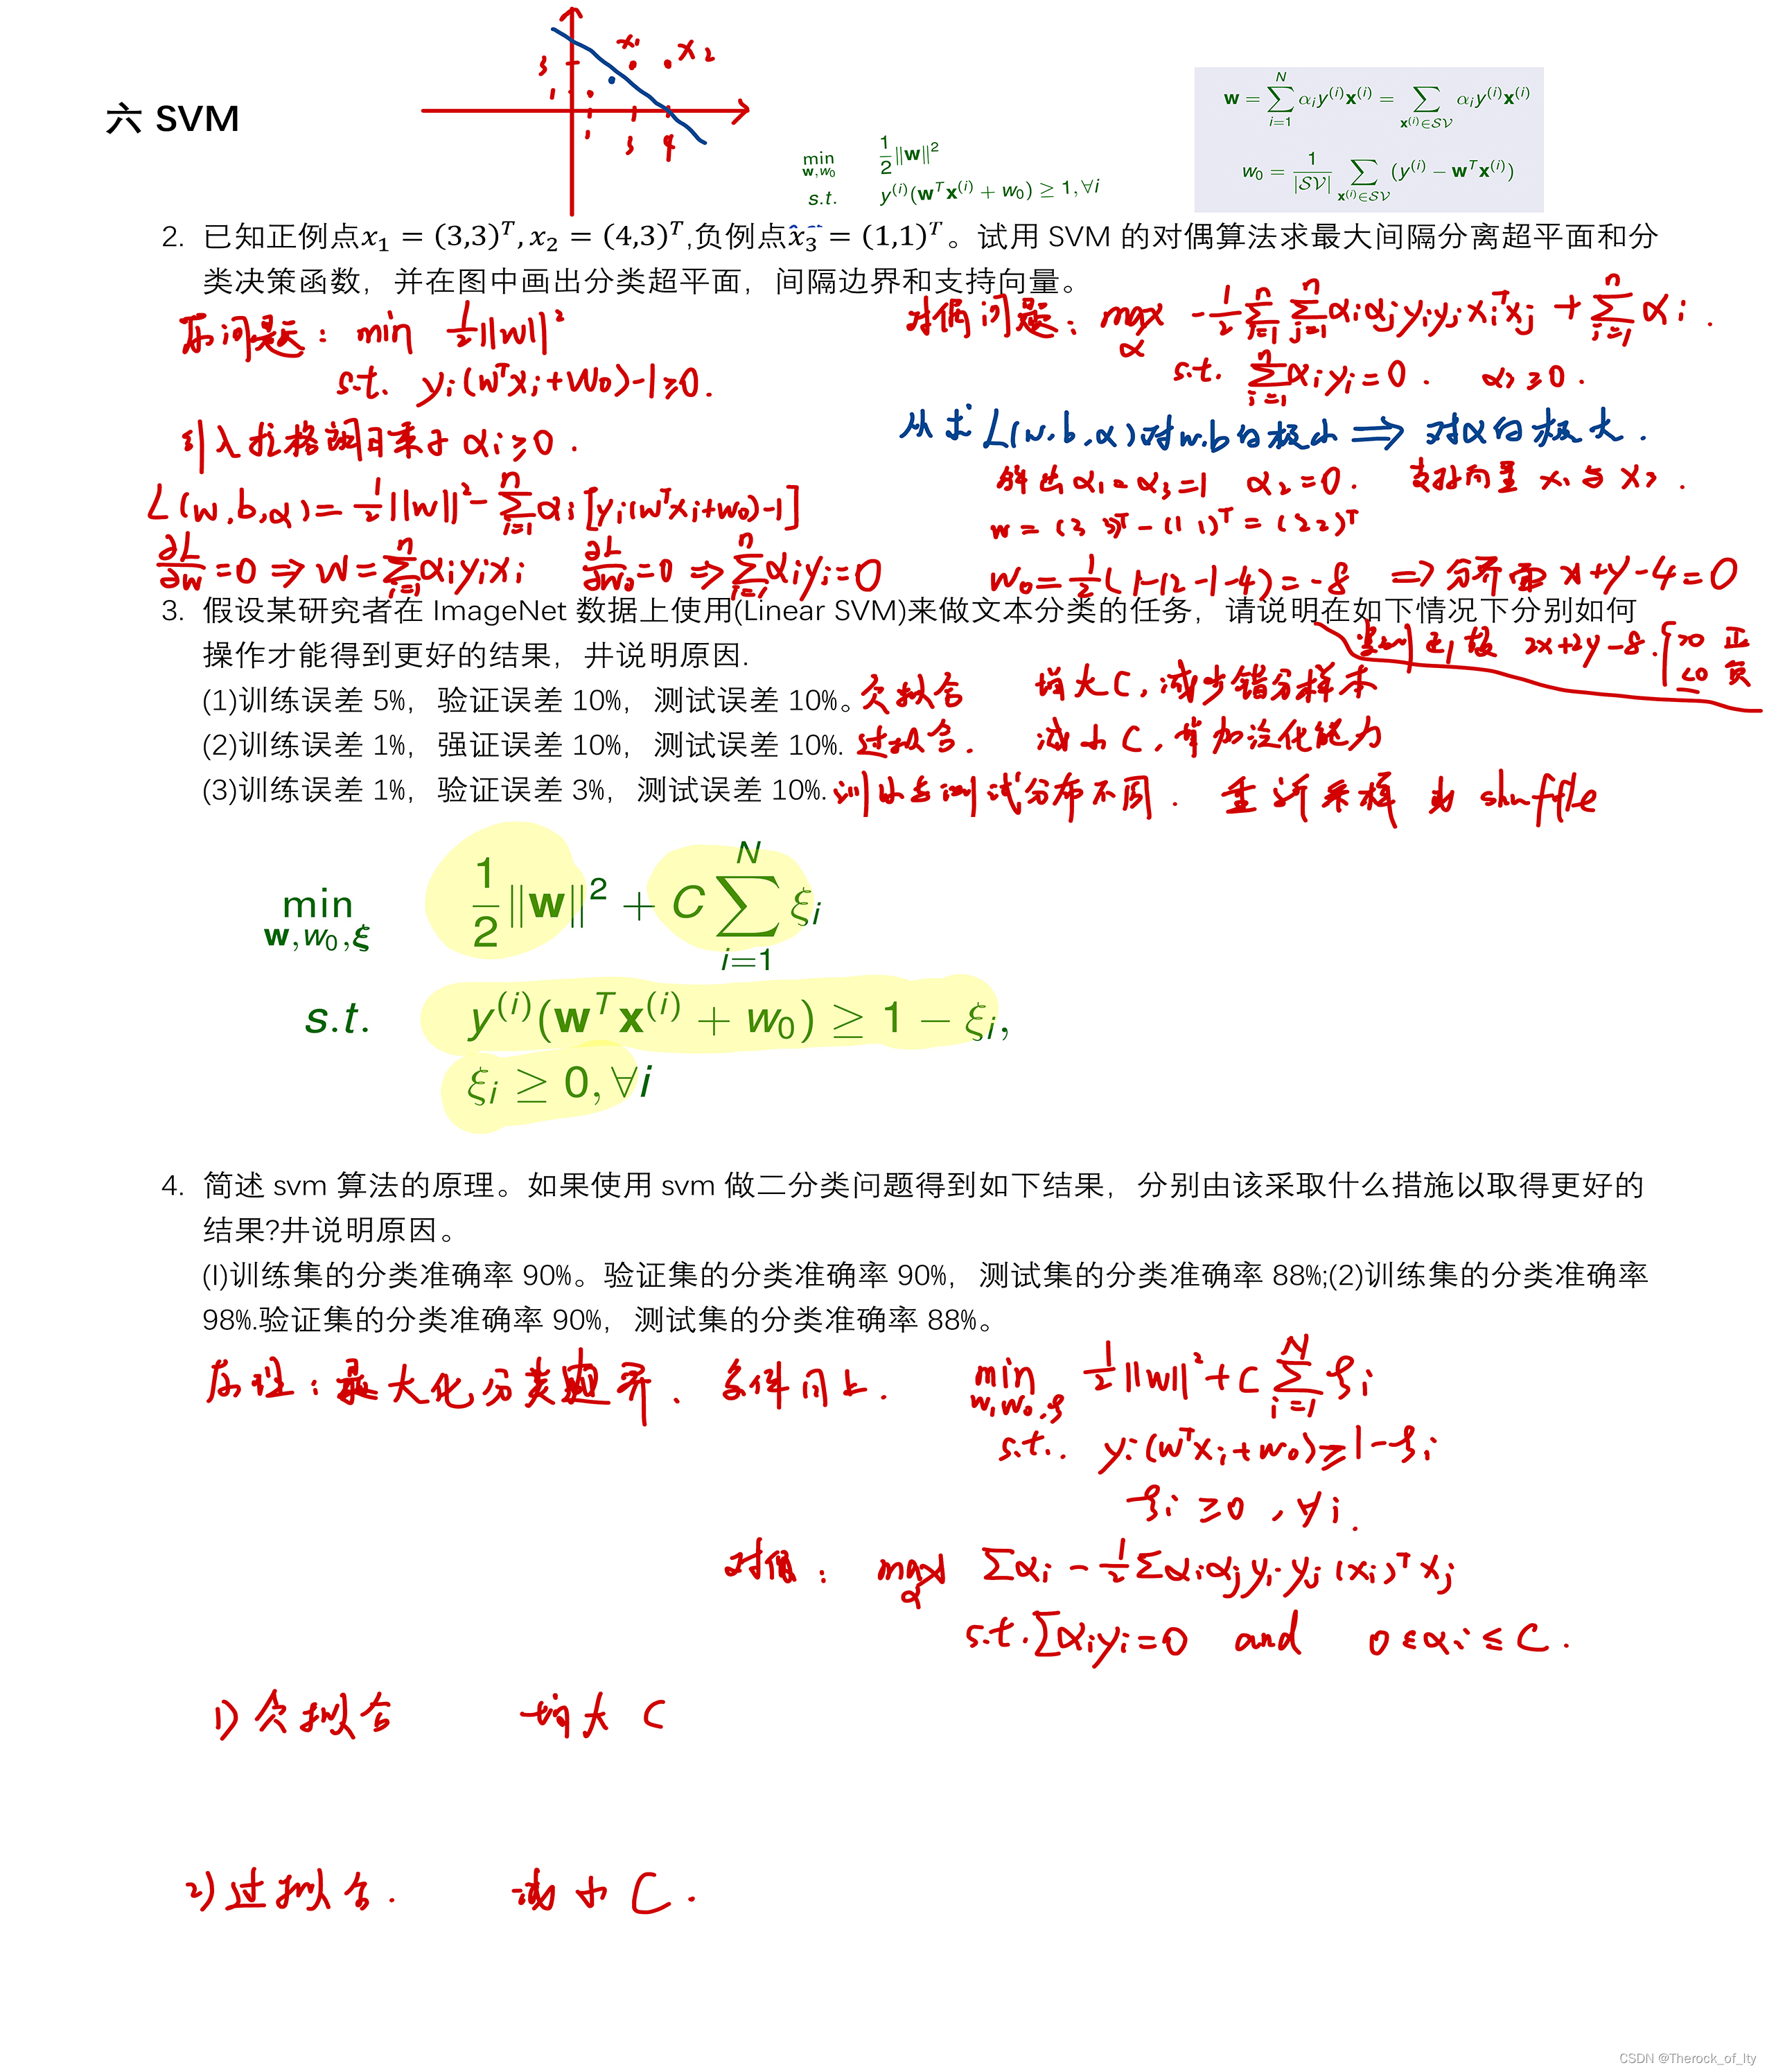 六 SVM
3
1
1
3
4
x₁
x₂
min_{w,w₀} 1/2‖w‖²
s.t. y⁽ⁱ⁾(wᵀx⁽ⁱ⁾ + w₀) ≥ 1, ∀i
w = ∑_{i=1}^{N} αᵢy⁽ⁱ⁾x⁽ⁱ⁾ = ∑_{x⁽ⁱ⁾∈SV} αᵢy⁽ⁱ⁾x⁽ⁱ⁾
w₀ = 1/|SV| ∑_{x⁽ⁱ⁾∈SV} (y⁽ⁱ⁾ − wᵀx⁽ⁱ⁾)
2. 已知正例点x₁ = (3,3)ᵀ, x₂ = (4,3)ᵀ,负例点x₃ = (1,1)ᵀ。试用 SVM 的对偶算法求最大间隔分离超平面和分
类决策函数，并在图中画出分类超平面，间隔边界和支持向量。
原问题：min 1/2‖w‖²
s.t. yᵢ(wᵀxᵢ+w₀)-1≥0.
引入拉格朗日乘子 αᵢ≥0.
L(w,b,α)=1/2‖w‖²-∑_{i=1}^{n}αᵢ[yᵢ(wᵀxᵢ+w₀)-1]
∂L/∂w=0 ⇒ w=∑_{i=1}^{n}αᵢyᵢxᵢ ∂L/∂w₀=0 ⇒ ∑_{i=1}^{n}αᵢyᵢ=0
对偶问题：max_α -1/2∑_{i=1}^{n}∑_{j=1}^{n}αᵢαⱼyᵢyⱼxᵢᵀxⱼ+∑_{i=1}^{n}αᵢ.
s.t. ∑_{i=1}^{n}αᵢyᵢ=0. αᵢ≥0.
从求L(w.b,α)对w.b的极小 ⇒ 对α的极大.
解出α₁=α₃=1 α₂=0. 支持向量 x₁与x₃.
w=(3 3)ᵀ-(1 1)ᵀ=(2 2)ᵀ
w₀=1/2(1-12-1-4)=-8 ⇒分界面 x+y-4=0
2x+2y-8 {>0 正
<0 负
3. 假设某研究者在 ImageNet 数据上使用(Linear SVM)来做文本分类的任务，请说明在如下情况下分别如何
操作才能得到更好的结果，井说明原因.
(1)训练误差 5%，验证误差 10%，测试误差 10%。欠拟合 增大C,减少错分样本
(2)训练误差 1%，强证误差 10%，测试误差 10%. 过拟合. 减小C,增加泛化能力
(3)训练误差 1%，验证误差 3%，测试误差 10%. 训练与测试分布不同. 重新采样 shuffle
min_{w,w₀,ξ} 1/2‖w‖² + C∑_{i=1}^{N} ξᵢ
s.t. y⁽ⁱ⁾(wᵀx⁽ⁱ⁾ + w₀) ≥ 1 − ξᵢ,
ξᵢ ≥ 0, ∀i
4. 简述 svm 算法的原理。如果使用 svm 做二分类问题得到如下结果，分别由该采取什么措施以取得更好的
结果?井说明原因。
(I)训练集的分类准确率 90%。验证集的分类准确率 90%，测试集的分类准确率 88%;(2)训练集的分类准确率
98%.验证集的分类准确率 90%，测试集的分类准确率 88%。
原理：最大化分类 条件同上.
min_{w,w₀,ξ} 1/2‖w‖²+C∑_{i=1}^{N}ξᵢ
s.t. yᵢ(wᵀxᵢ+w₀)≥1-ξᵢ
ξᵢ≥0,∀i.
对偶：max_α ∑αᵢ-1/2∑αᵢαⱼyᵢyⱼ(xᵢ)ᵀxⱼ
s.t.∑αᵢyᵢ=0 and 0≤αᵢ≤C.
1)欠拟合 增大 C
2)过拟合. 减小 C.
CSDN @Therock_of_lty